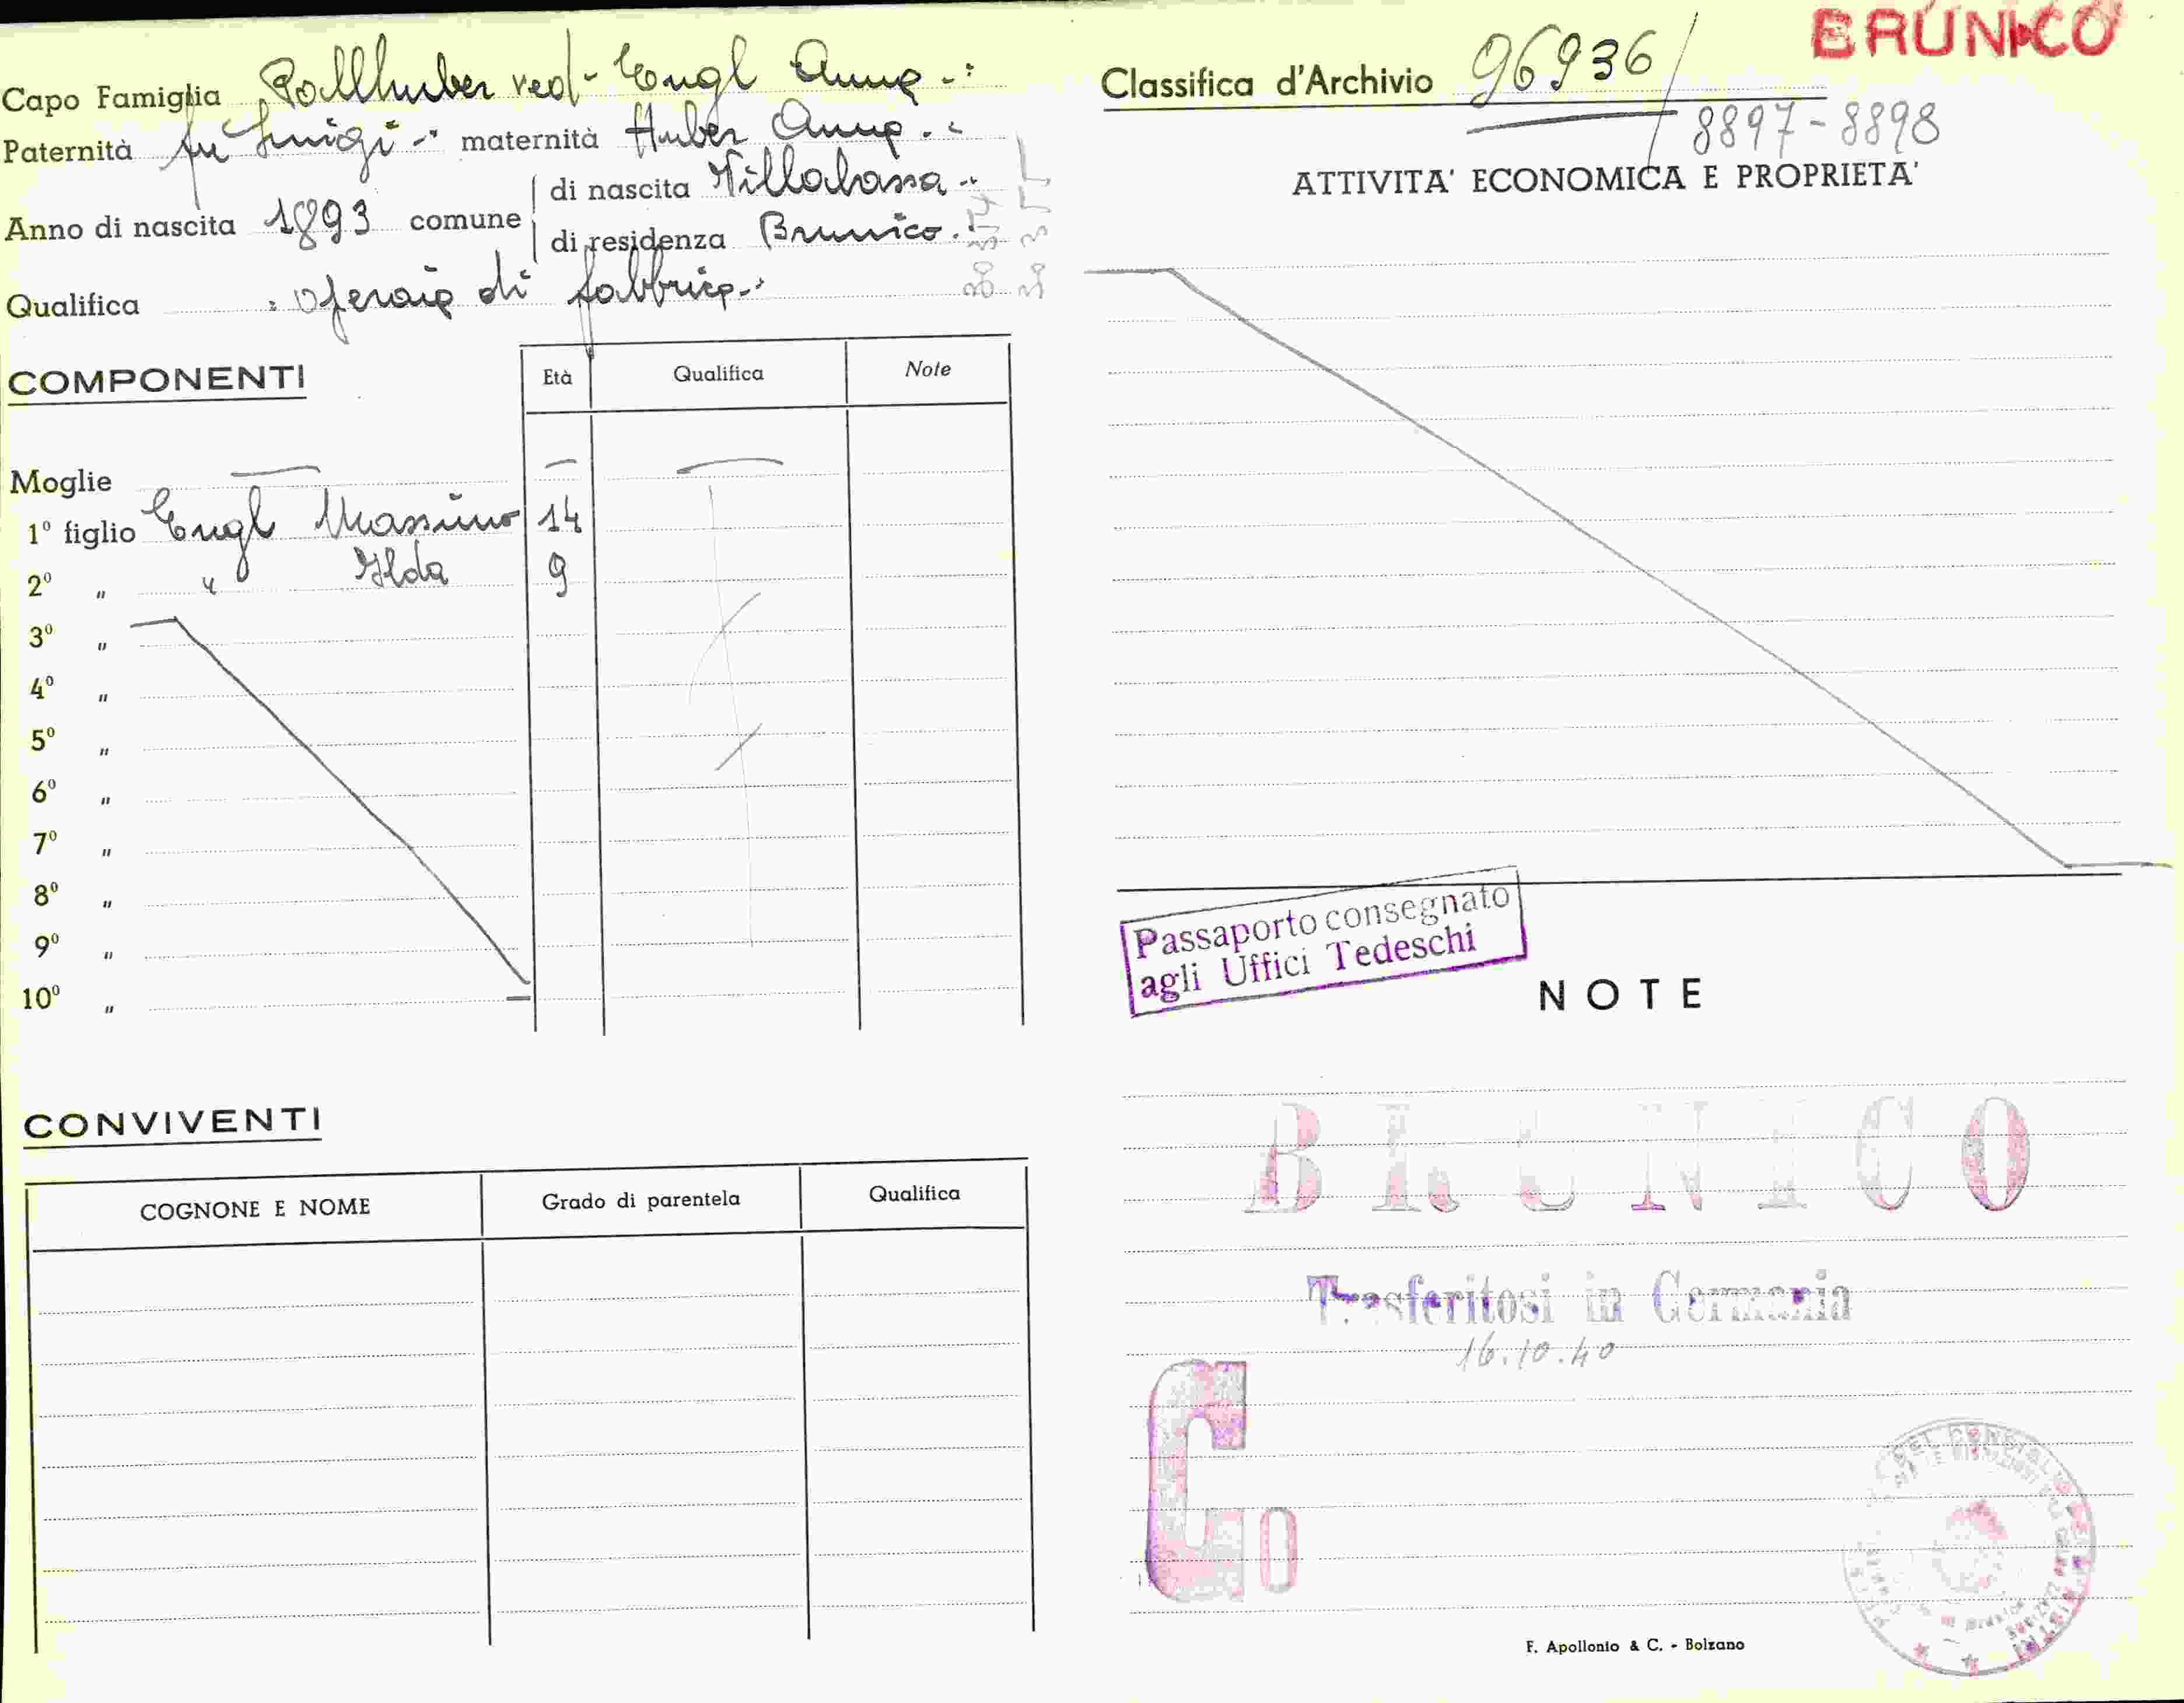 BRUNICO
Capo Famiglia Pallhuber ved. Engl Anna
Paternità fu Luigi maternità Huber Anna
Anno di nascita 1893 comune di nascita Villabassa
di residenza Brunico
Qualifica operaia di fabbrica
COMPONENTI
Età Qualifica Note
Moglie —
1º figlio Engl Massimo 14
2º " " Ilda 9
3º "
4º "
5º "
6º "
7º "
8º "
9º "
10º "
CONVIVENTI
COGNONE E NOME Grado di parentela Qualifica
Classifica d'Archivio 96936/
8897-8898
ATTIVITA' ECONOMICA E PROPRIETA'
Passaporto consegnato
agli Uffici Tedeschi
NOTE
BRUNICO
Trasferitosi in Germania
16.10.40
F. Apollonio & C. - Bolzano